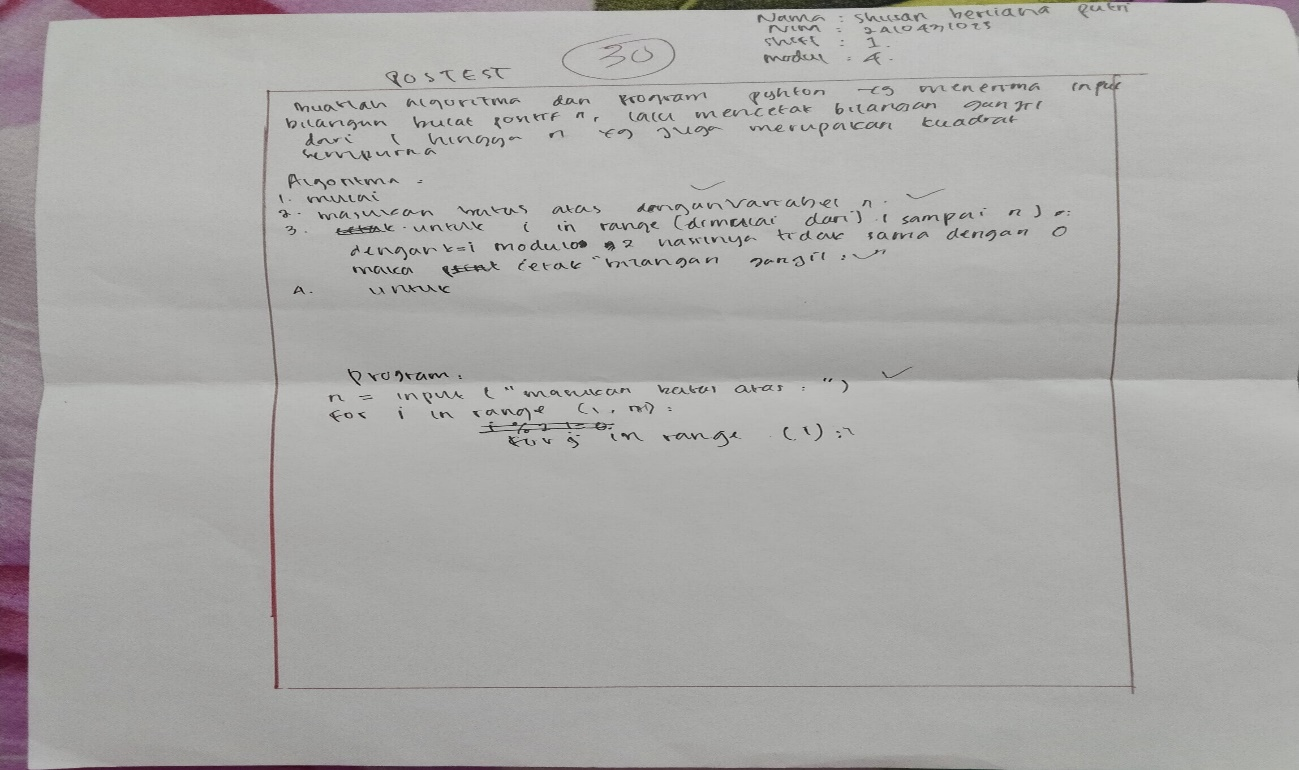 Nama : Shusan berliana putri
NIM : 2410431023
Shift : 1.
modul : 4.
30
POSTEST
Buatlah algoritma dan program pyhton yg menerima input
bilangan bulat positif n, lalu mencetak bilangan ganjil
dari 1 hingga n yg juga merupakan kuadrat
sempurna
Algoritma :
1. mulai
2. masukan batas atas dengan variabel n.
3. untuk i in range (dimulai dari) 1 sampai n)
dengan k=i modulo 2 hasilnya tidak sama dengan 0
maka cetak "bilangan ganjil : "
4. untuk
Program :
n = input ("masukan batas atas : ")
for i in range (1, n) :
i % 2 != 0:
for j in range (1) :